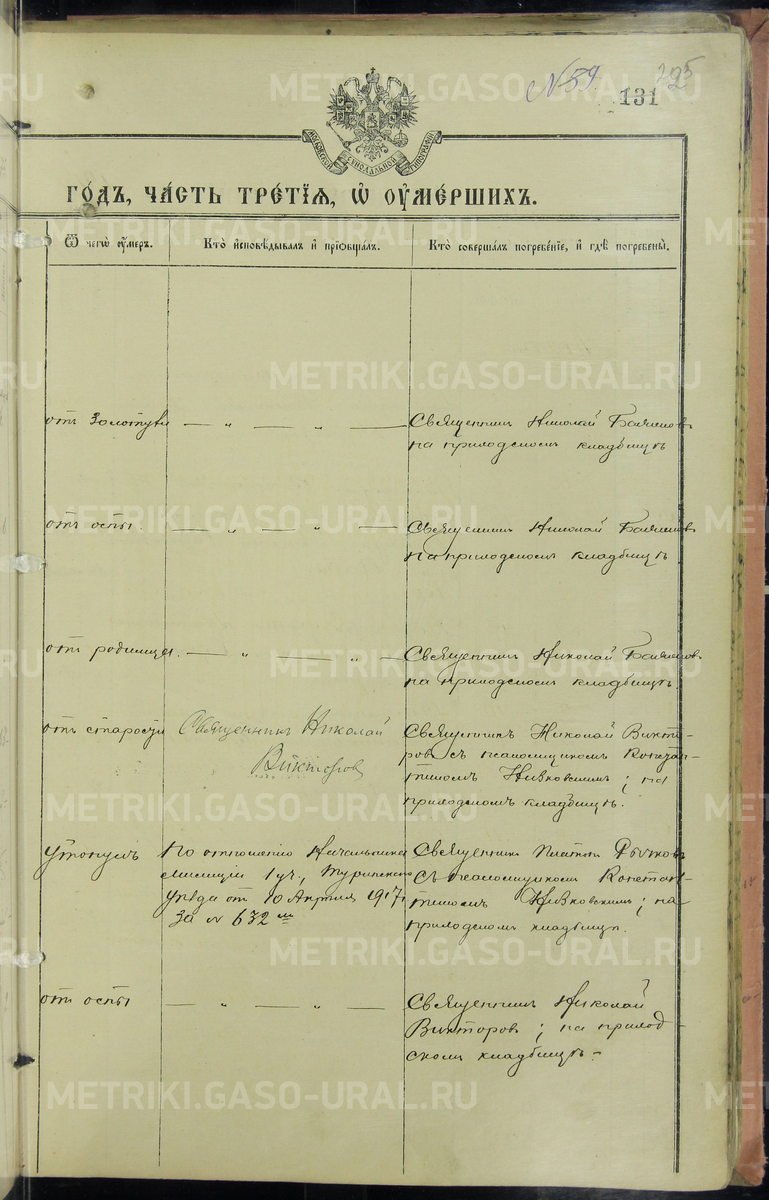 № 59.
131
МОСКОВСКОЙ СѴНОДАЛЬНОЙ ТИПОГРАФІИ
ГО́ДЪ, ЧА́СТЬ ТРЕ́ТЇѦ, Ѡ҆ ОУ҆МЕ́РШИХЪ.
Ѿ чегѡ̀ оу҆́меръ.
Кто̀ и҆сповѣ́дывалъ и҆ прїѡбща́лъ.
Кто̀ соверша́лъ погребе́нїе, и҆ гдѣ̀ погребены̀.
отъ золотухи — „ — „ — Священникъ Николай
на приходскомъ кладбищѣ
отъ оспы. — „ — „ — Священникъ Николай
на приходскомъ кладбищѣ
отъ родимца. — „ — „ — Священникъ Николай
на приходскомъ кладбищѣ.
отъ старости
Священникъ Николай
Викторовъ
Священникъ Николай Викто-
ровъ съ псаломщикомъ Констан-
тиномъ Низковскимъ; на
приходскомъ кладбищѣ.
утонулъ
По отношенію Начальника
милиціи 1 уч., Туринского
уѣзда от 10 Апрѣля 1917 г.
за № 632 мъ
Священникъ Платонъ
съ псаломщикомъ Констан-
тиномъ Низковскимъ; на
приходскомъ кладбищѣ.
отъ оспы — „ — „ —
Священникъ Николай
Викторовъ; на приход-
скомъ кладбищѣ. –
METRIKI.GASO-URAL.RU